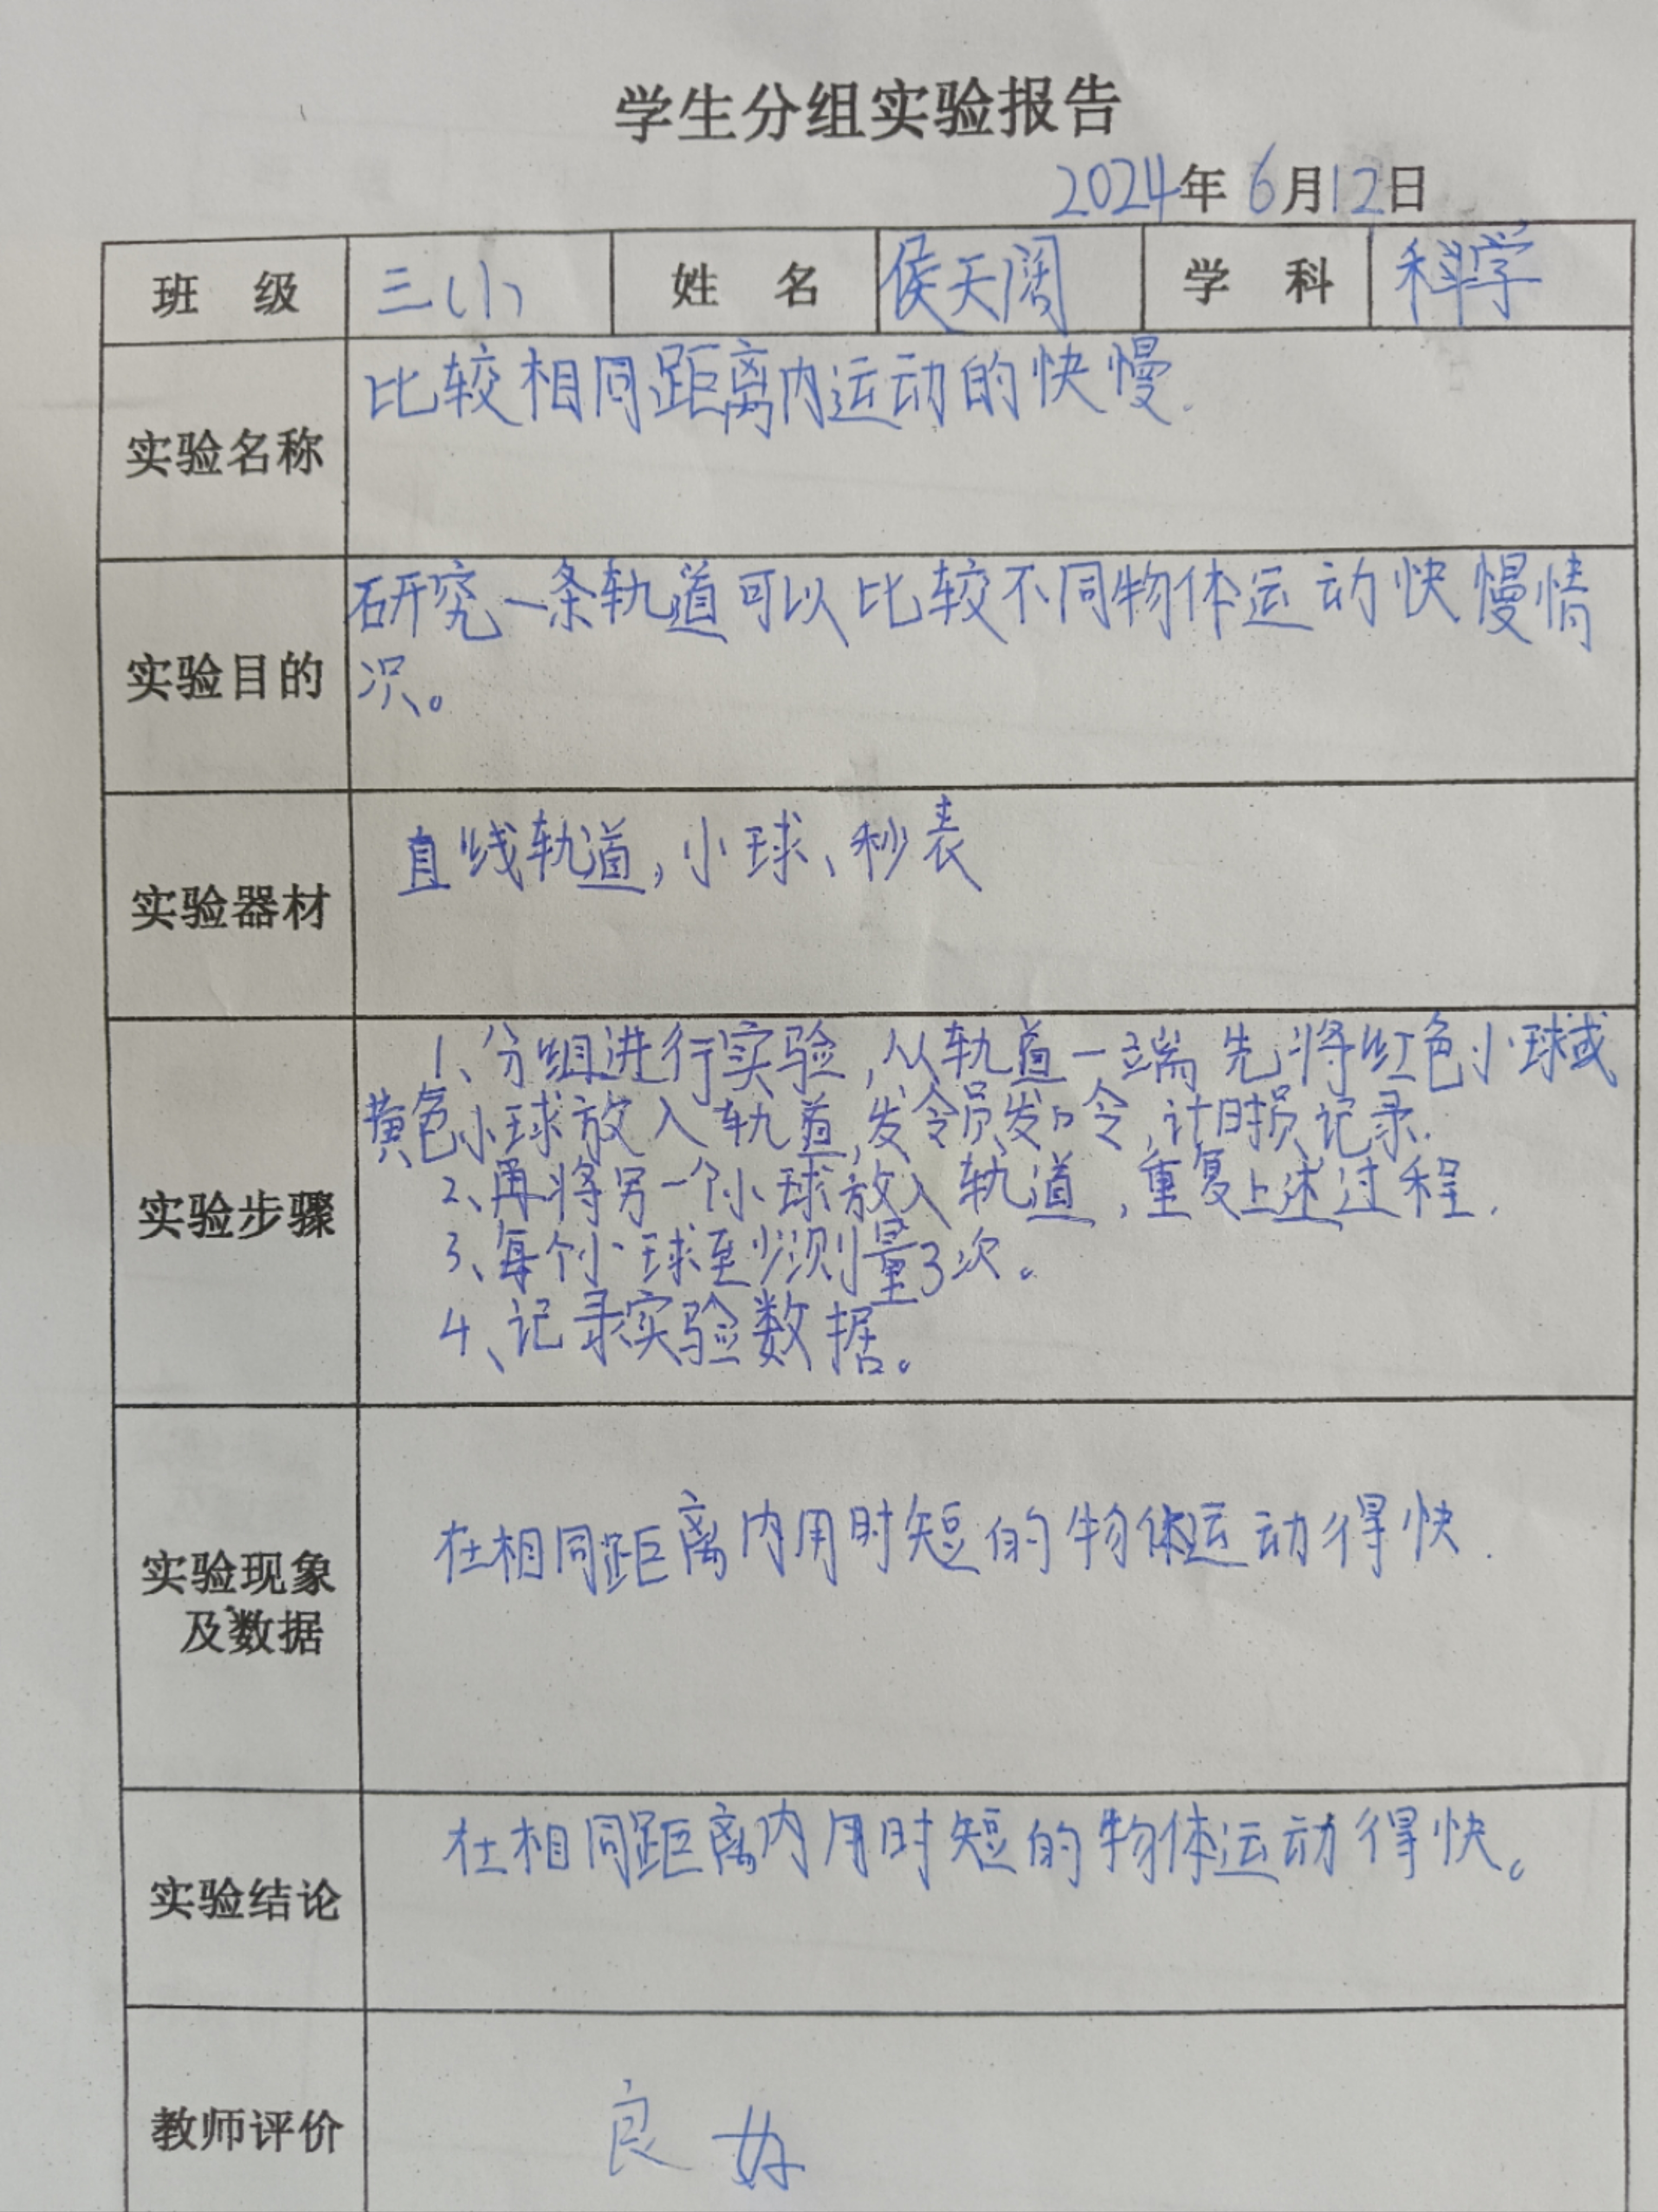 学生分组实验报告
2024年6月12日
班 级 三(1) 姓 名 侯天阔 学 科 科学
实验名称 比较相同距离内运动的快慢.
实验目的 研究一条轨道可以比较不同物体运动快慢情
况。
实验器材 直线轨道,小球、秒表
实验步骤
1、分组进行实验,从轨道一端先将红色小球或
黄色小球放入轨道,发令员发口令,计时员记录.
2、再将另一个小球放入轨道,重复上述过程.
3、每个小球至少测量3次。
4、记录实验数据。
实验现象
及数据
在相同距离内用时短的物体运动得快.
实验结论 在相同距离内用时短的物体运动得快。
教师评价 良好